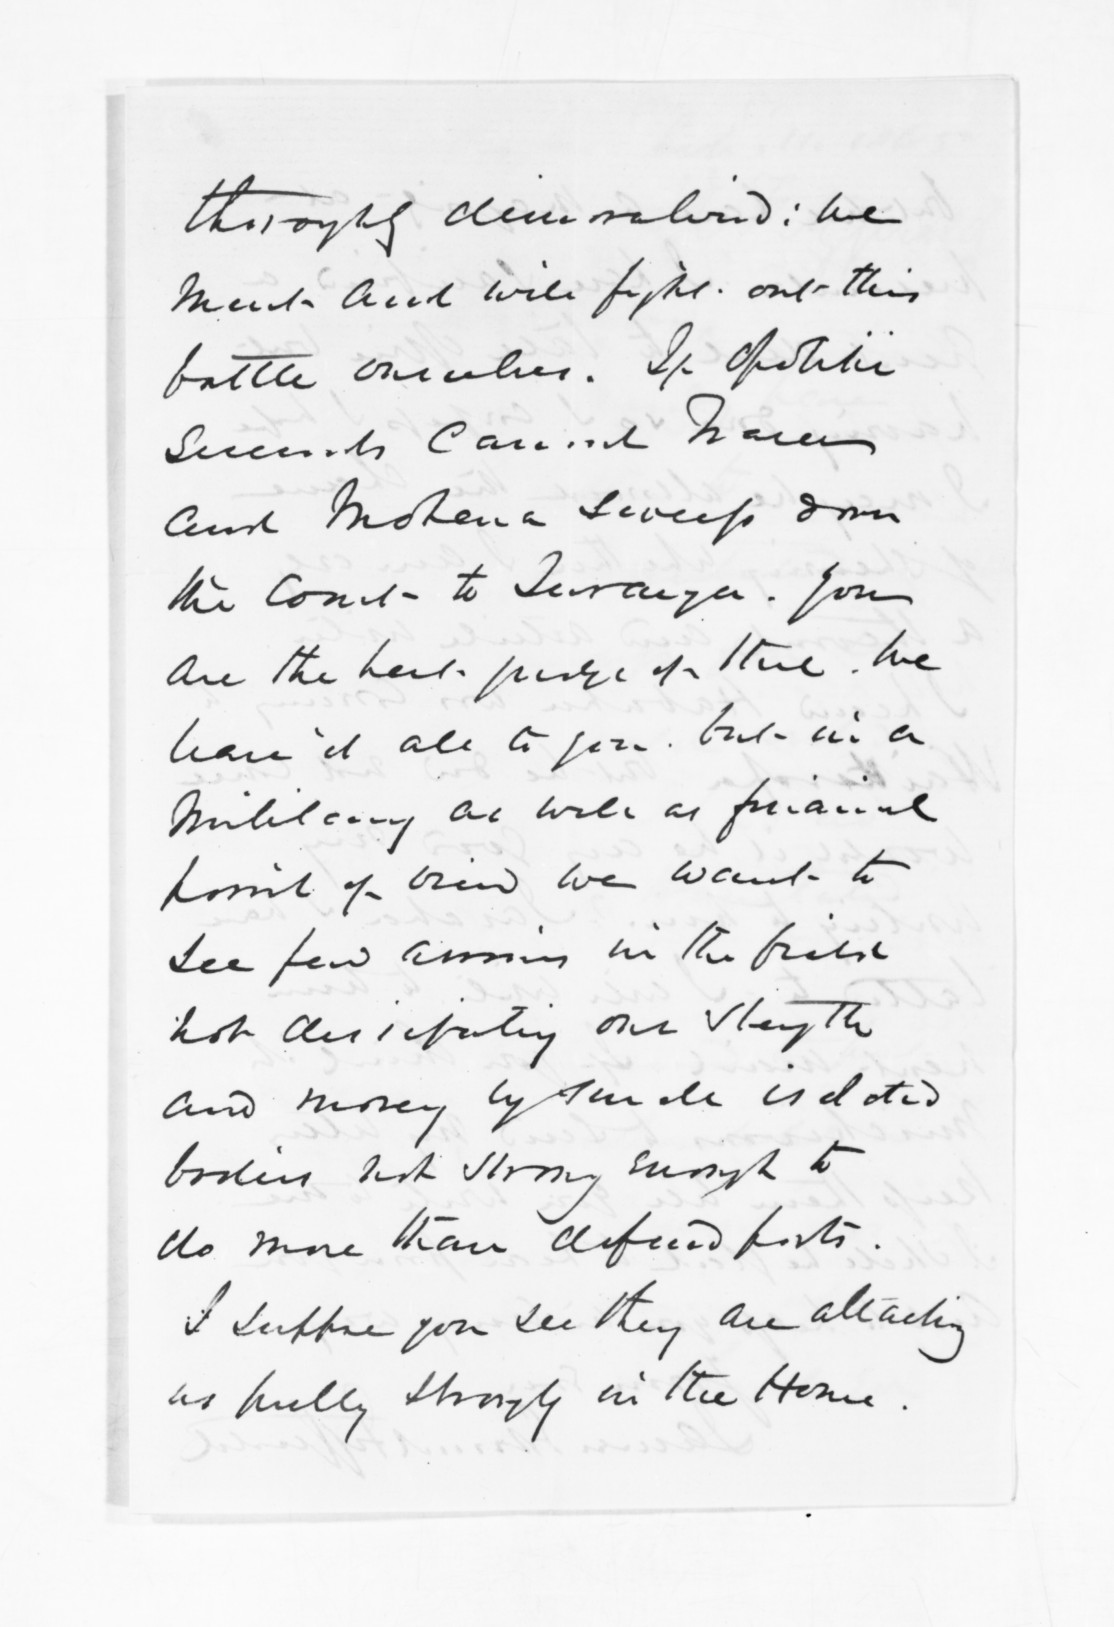 thoroughly demoralised: we
must and will fight out this
battle ourselves. If Opotiki
succeeds cannot
and Mokena sweep down
the Coast to Turanga. You
are the best judge of this. We
leave it all to you. but in a
military as well as financial
point of view we want to
see few armies in the field
not dissipating our strength
and money by small isolated
bodies not strong enough to
do more than defend posts.
I suppose you see they are attacking
us pretty strongly in the House.